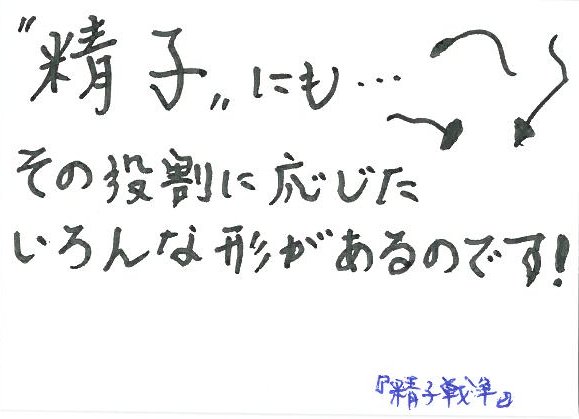 "精子"にも…
その役割に応じた
いろんな形があるのです!
『精子戦争』